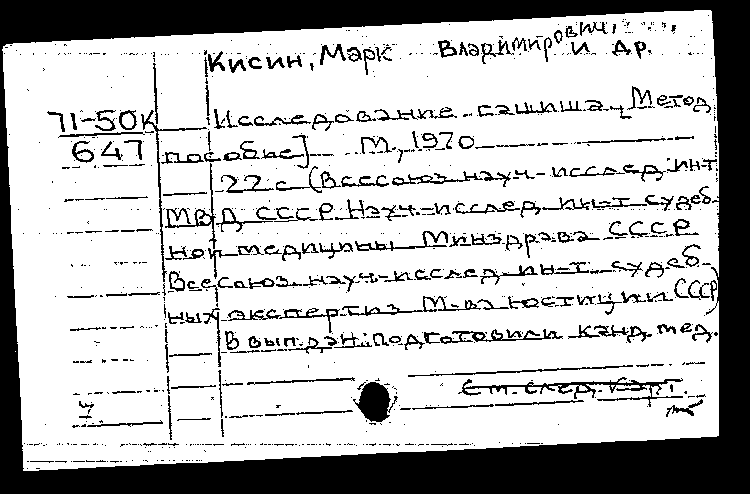 Кисин, Марк Владимирович, и др.
71-50К
647
Исследование гашиша. [Метод.
пособие] М., 1970
22 с (Всесоюз науч.-исслед. ин-т
МВД СССР. Науч.-исслед. ин-т судеб-
ной медицины Минздрава СССР.
Всесоюз. науч-исслед. ин-т судеб-
ных экспертиз М-ва юстиции СССР)
В вып. дан.: подготовили канд. мед.
См. след. карт.
7